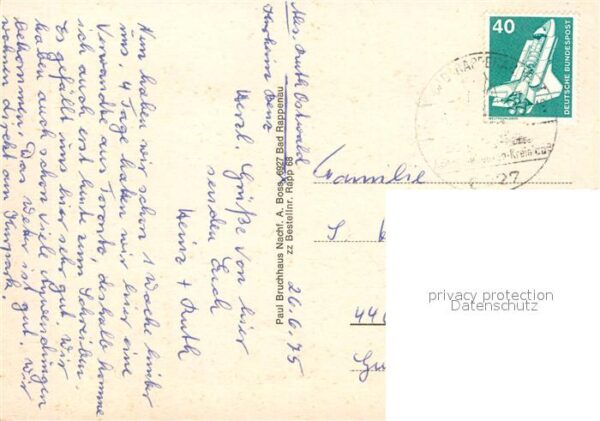 Abs. Ruth Ostwald
Kurheim Benz
26.6.75
Nun haben wir schon 1 Woche hinter
uns. 4 Tage hatten wir hier eine
Verwandte aus Toronto, deshalb komme
ich auch erst heute zum Schreiben.
Es gefällt uns hier sehr gut. Wir
haben auch schon viele Anwendungen
bekommen. Das Wetter ist gut. Wir
wohnen direkt am Kurpark.
Herzl. Grüße von hier
senden Euch
Heinz + Ruth
Paul Bruchhaus Nachf. A. Boss 6927 Bad Rappenau
zz Bestellnr. Rapp 68
40
DEUTSCHE BUNDESPOST
Familie
privacy protection
Datenschutz